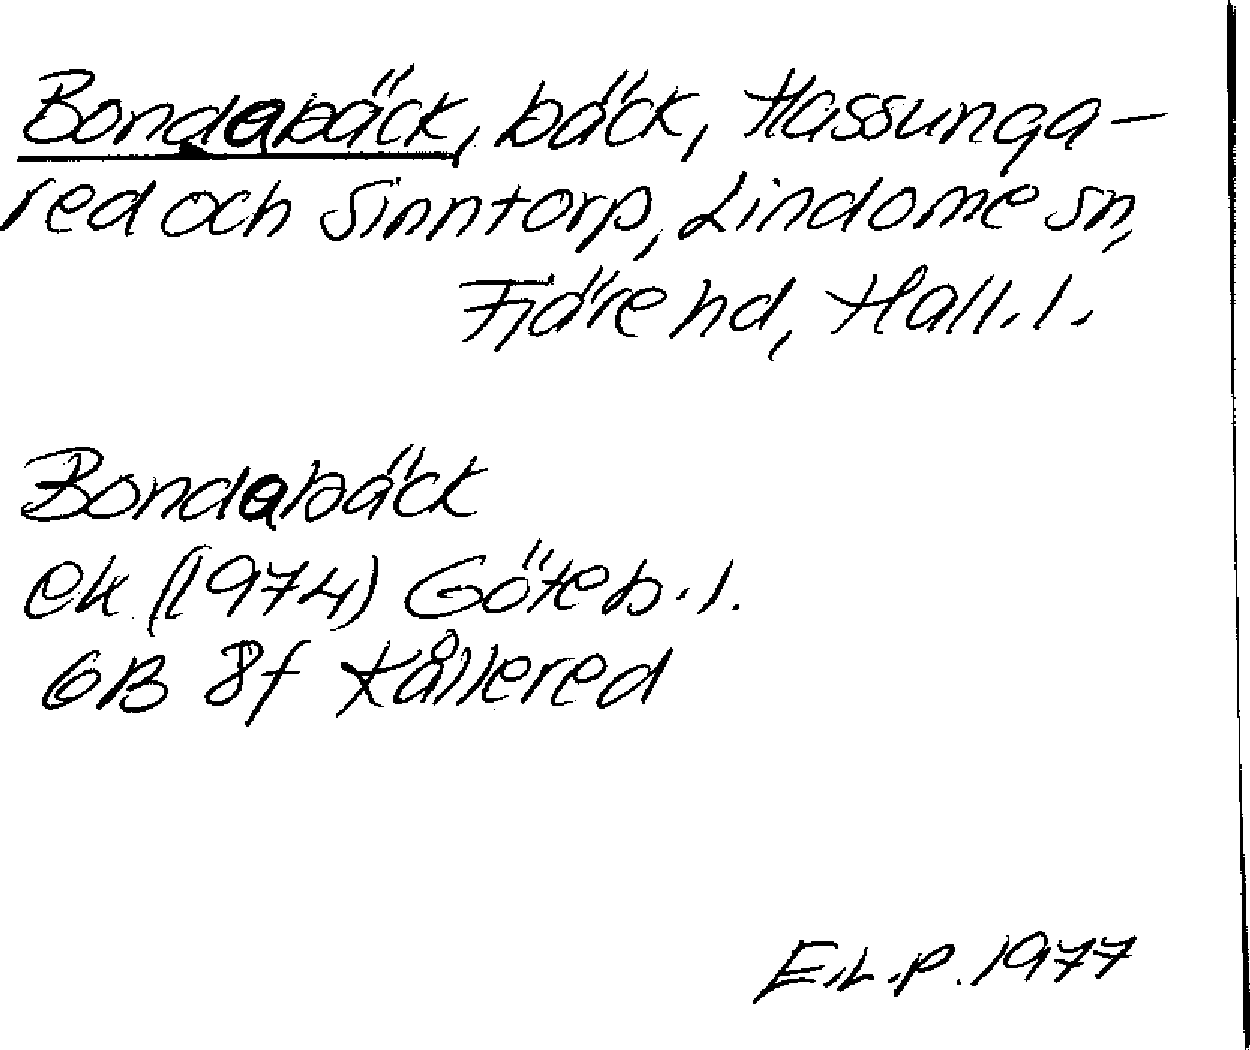 Bondabäck, bäck, Hassunga-
red och Sinntorp, Lindome sn,
Fjäre hd, Hall. l.
Bondabäck
ek (1974) Göteb. l.
6B 8f Kållered
E.L.P. 1977